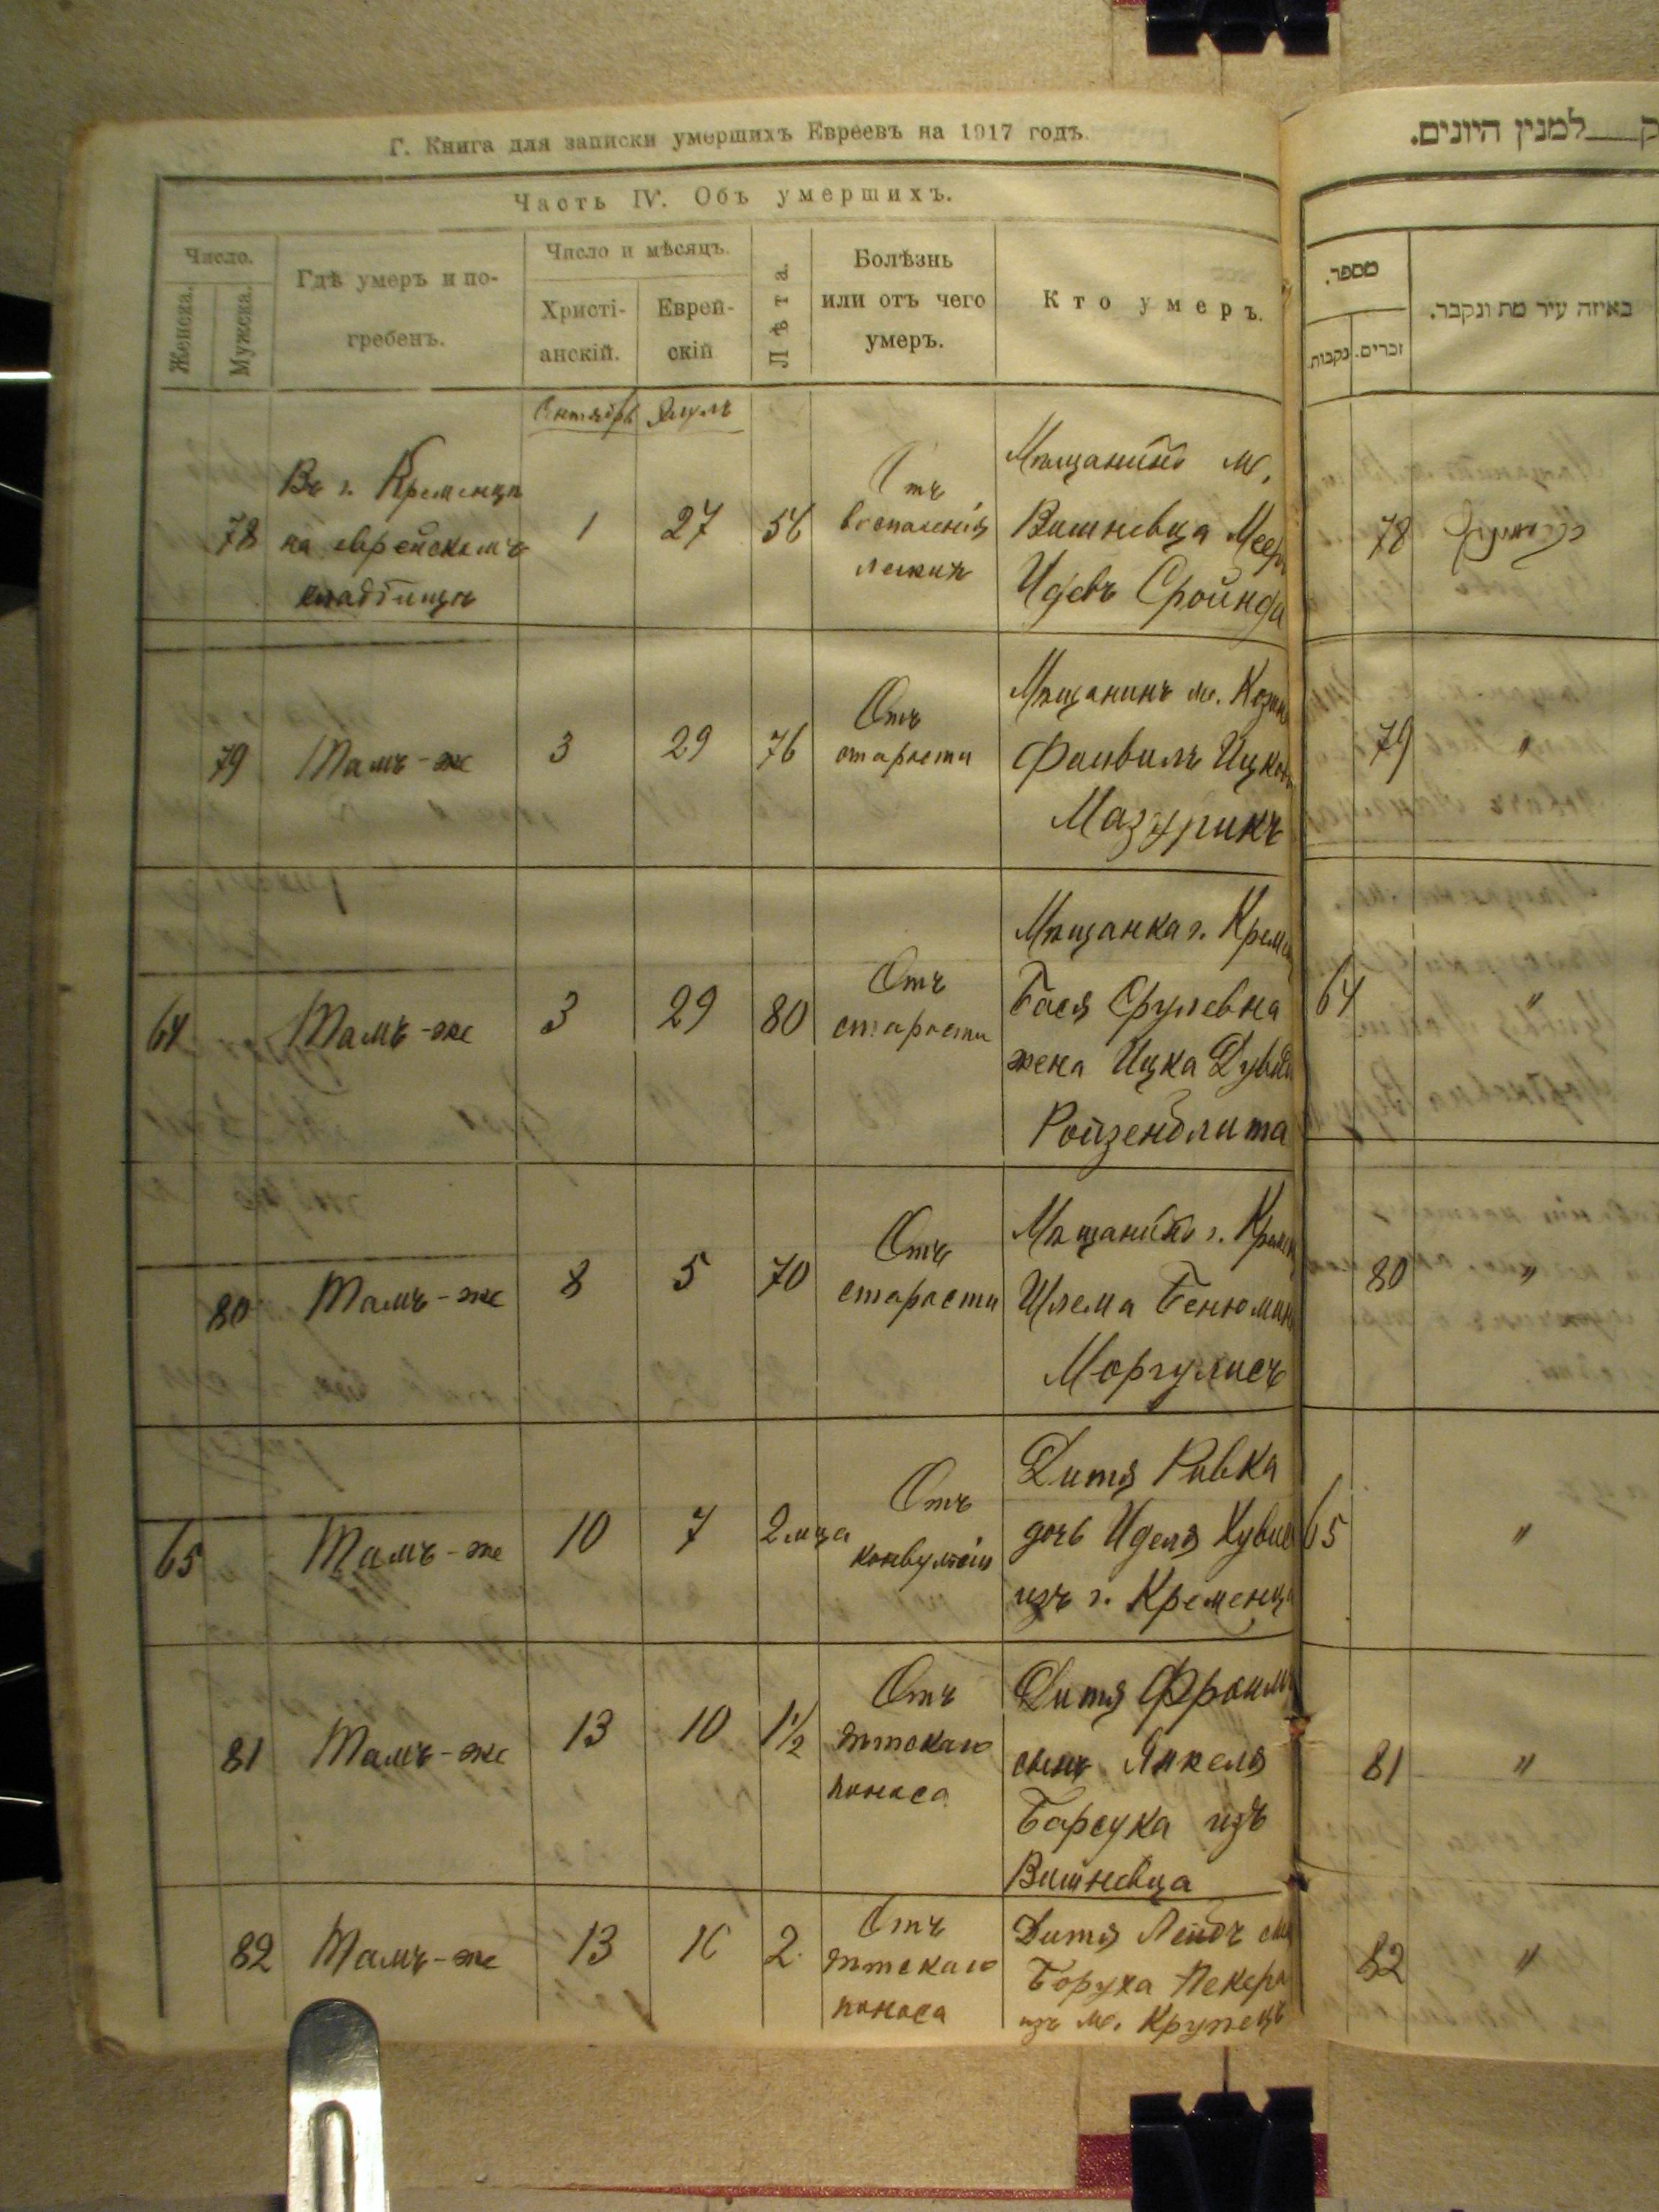 Г. Книга для записки умершихъ Евреевъ на 1917 годъ.
Часть IV. Объ умершихъ.
Число.
Женска.
Мужска.
Гдѣ умеръ и по-
гребенъ.
Число и мѣсяцъ.
Христі-
анскій.
Еврей-
скій
Лѣта.
Болѣзнь
или отъ чего
умеръ.
Кто умеръ.
Сентябрь Элулъ
78
Въ г. Кременцѣ
на еврейскомъ
кладбищѣ
1
27
56
Отъ
воспаленія
легкихъ
Мѣщанинъ м.
Вишневца Меер
Идевъ Сройнда
79
Тамъ-же
3
29
76
Отъ
старости
Мѣщанинъ м. Козин
Файвилъ Ицков
Мазурикъ
64
Тамъ-же
3
29
80
Отъ
старости
Мѣщанка г. Кремен
Бася Срулевна
жена Ицка Дувид
Ройзенблита
80
Тамъ-же
8
5
70
Отъ
старости
Мѣщанинъ г. Кремен
Шлема Бенюмин
Моргулисъ
65
Тамъ-же
10
7
2 мца
Отъ
конвульсіи
Дитя Ривка
дочь Иделя
изъ г. Кременца
81
Тамъ-же
13
10
1 1/2
Отъ
дѣтскаго
поноса
Дитя Фроим
сынъ Янкеля
Барсука изъ
Вишневца
82
Тамъ-же
13
10
2
Отъ
дѣтскаго
поноса
Дитя Лейбъ сы
Боруха Пекер
изъ м. Крупецъ
ק___למנין היונים.
מספר.
נקבות.
זכרים.
באיזה עיר מת ונקבר.
78
79
"
64
"
80
"
65
"
81
"
82
"